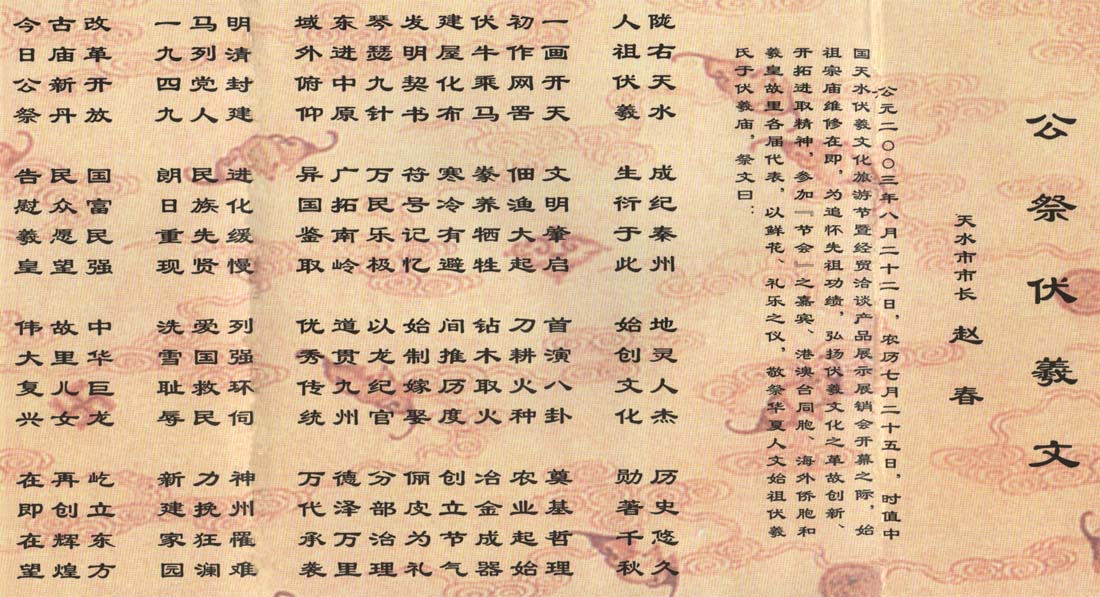 公祭伏羲文
天水市市长 赵春
公元二〇〇三年八月二十二日，农历七月二十五日，时值中
国天水伏羲文化旅游节暨经贸洽谈产品展示展销会开幕之际，始
祖宗庙维修在即，为追怀先祖功绩，弘扬伏羲文化之革故创新、
开拓进取精神，参加『节会』之嘉宾、港澳台同胞、海外侨胞和
羲皇故里各届代表，以鲜花、礼乐之仪，敬祭华夏人文始祖伏羲
氏于伏羲庙，祭文曰：
陇右天水 成纪秦州 地灵人杰 历史悠久
人祖伏羲 生衍于此 始创文化 勋著千秋
一画开天 文明肇启 首演八卦 奠基哲理
初作网罟 佃渔大起 刀耕火种 农业起始
伏牛乘马 拳养牺牲 钻木取火 冶金成器
建屋化布 寒冷有避 间推历度 创立节气
发明契书 符号记忆 始制嫁娶 俪皮为礼
琴瑟九针 万民乐极 以龙纪官 分部治理
东进中原 广拓南岭 道贯九州 德泽万里
域外俯仰 异国鉴取 优秀传统 万代承袭
明清封建 进化缓慢 列强环伺 神州罹难
马列党人 民族先贤 爱国救民 力挽狂澜
一九四九 朗日重现 洗雪耻辱 新建家园
改革开放 国富民强 中华巨龙 屹立东方
古庙新丹 民众愿望 故里儿女 再创辉煌
今日公祭 告慰羲皇 伟大复兴 在即在望